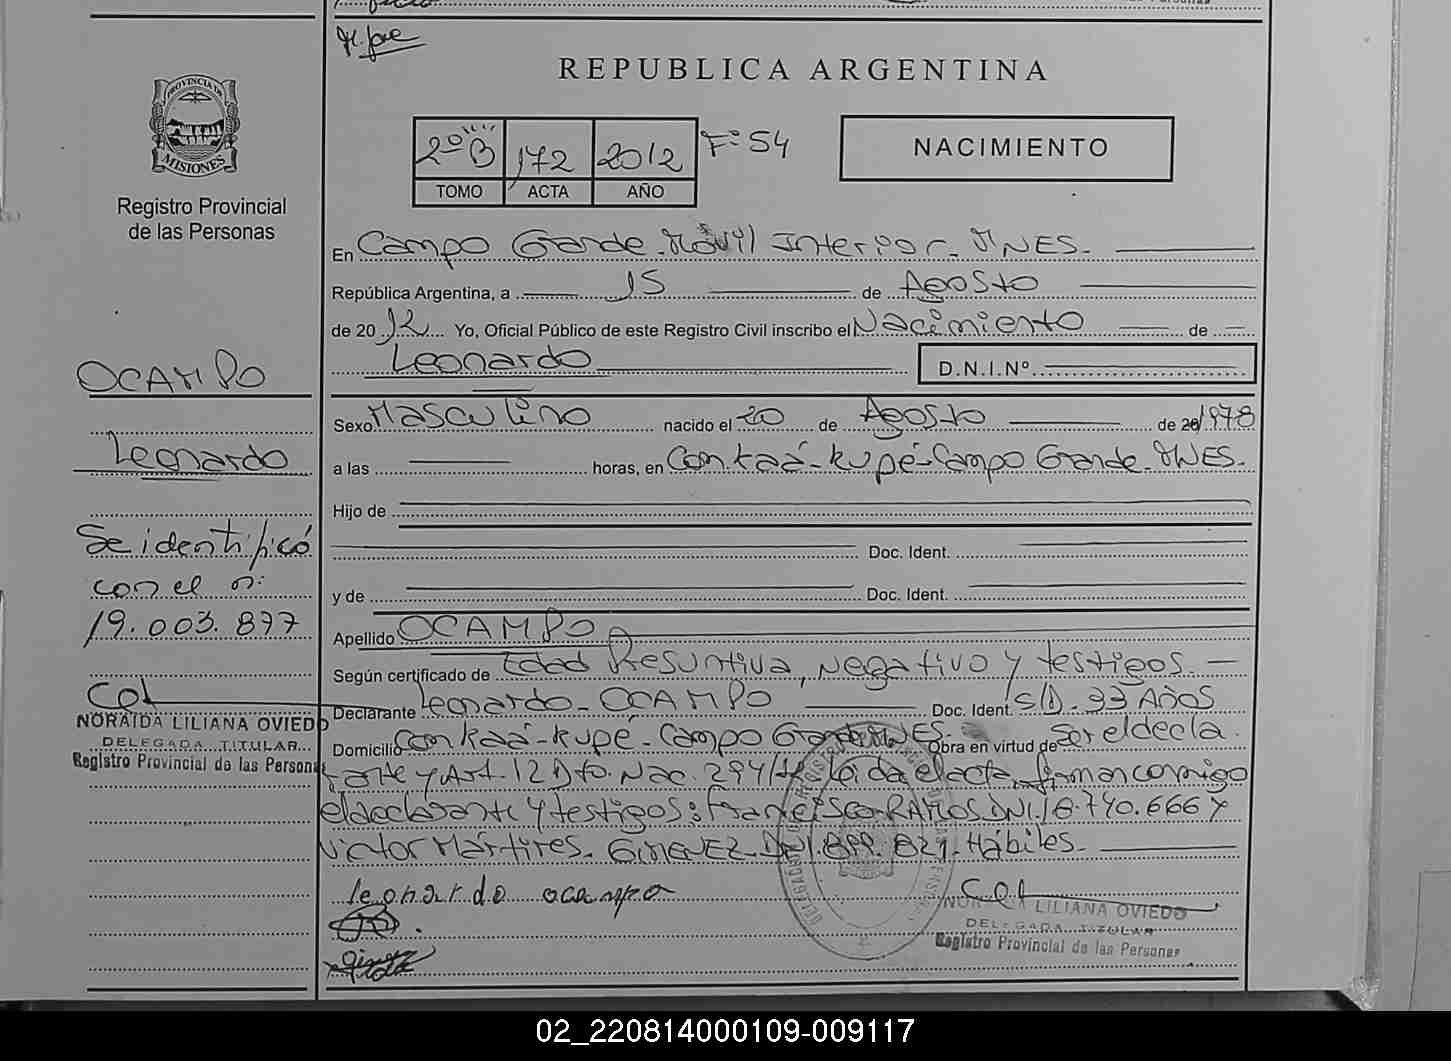 REPUBLICA ARGENTINA
PROVINCIA DE
MISIONES
Registro Provincial
de las Personas
2º B 172 2012 Fº 54
TOMO ACTA AÑO
NACIMIENTO
En Campo Grande - Móvil Interior - MNES.
República Argentina, a 15 de Agosto
de 2012 Yo, Oficial Público de este Registro Civil inscribo el Nacimiento de
Leonardo D.N.I.Nº
Sexo Masculino nacido el 20 de Agosto de 20 1978
a las horas, en Com. kaá-kupé - Campo Grande - MNES.
Hijo de
Doc. Ident.
y de Doc. Ident.
Apellido OCAMPO
Según certificado de Edad Presuntiva, Negativo y testigos
Declarante Leonardo - OCAMPO Doc. Ident. S/D. 33 Años
Domicilio Com kaá-kupé - Campo Grande MNES. Obra en virtud de ser el decla
rante y Art. 12 Dto. Nac. 294/ Leída el acta, firman conmigo
el declarante y testigos: Francisco RAMOS DNI. 16.740.666 y
Victor Mártires - GIMENEZ - DNI. 899.821 - Hábiles -
leonardo ocampo
NORAIDA LILIANA OVIEDO
DELEGADA TITULAR
Registro Provincial de las Personas
OCAMPO
Leonardo
Se identificó
con el n:
19.003.877
NORAIDA LILIANA OVIEDO
DELEGADA TITULAR
Registro Provincial de las Personas
02_220814000109-009117